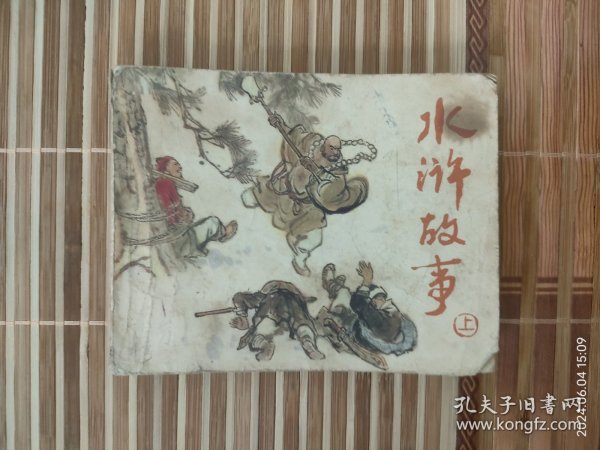 水浒故事
上
孔夫子旧書网
www.kongfz.com
2024.06.04 15:09